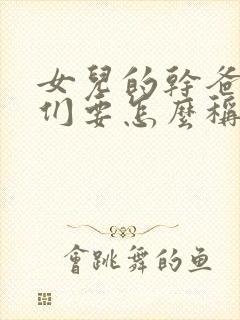 女兒的幹爸
们要怎麼稱
會跳舞的鱼